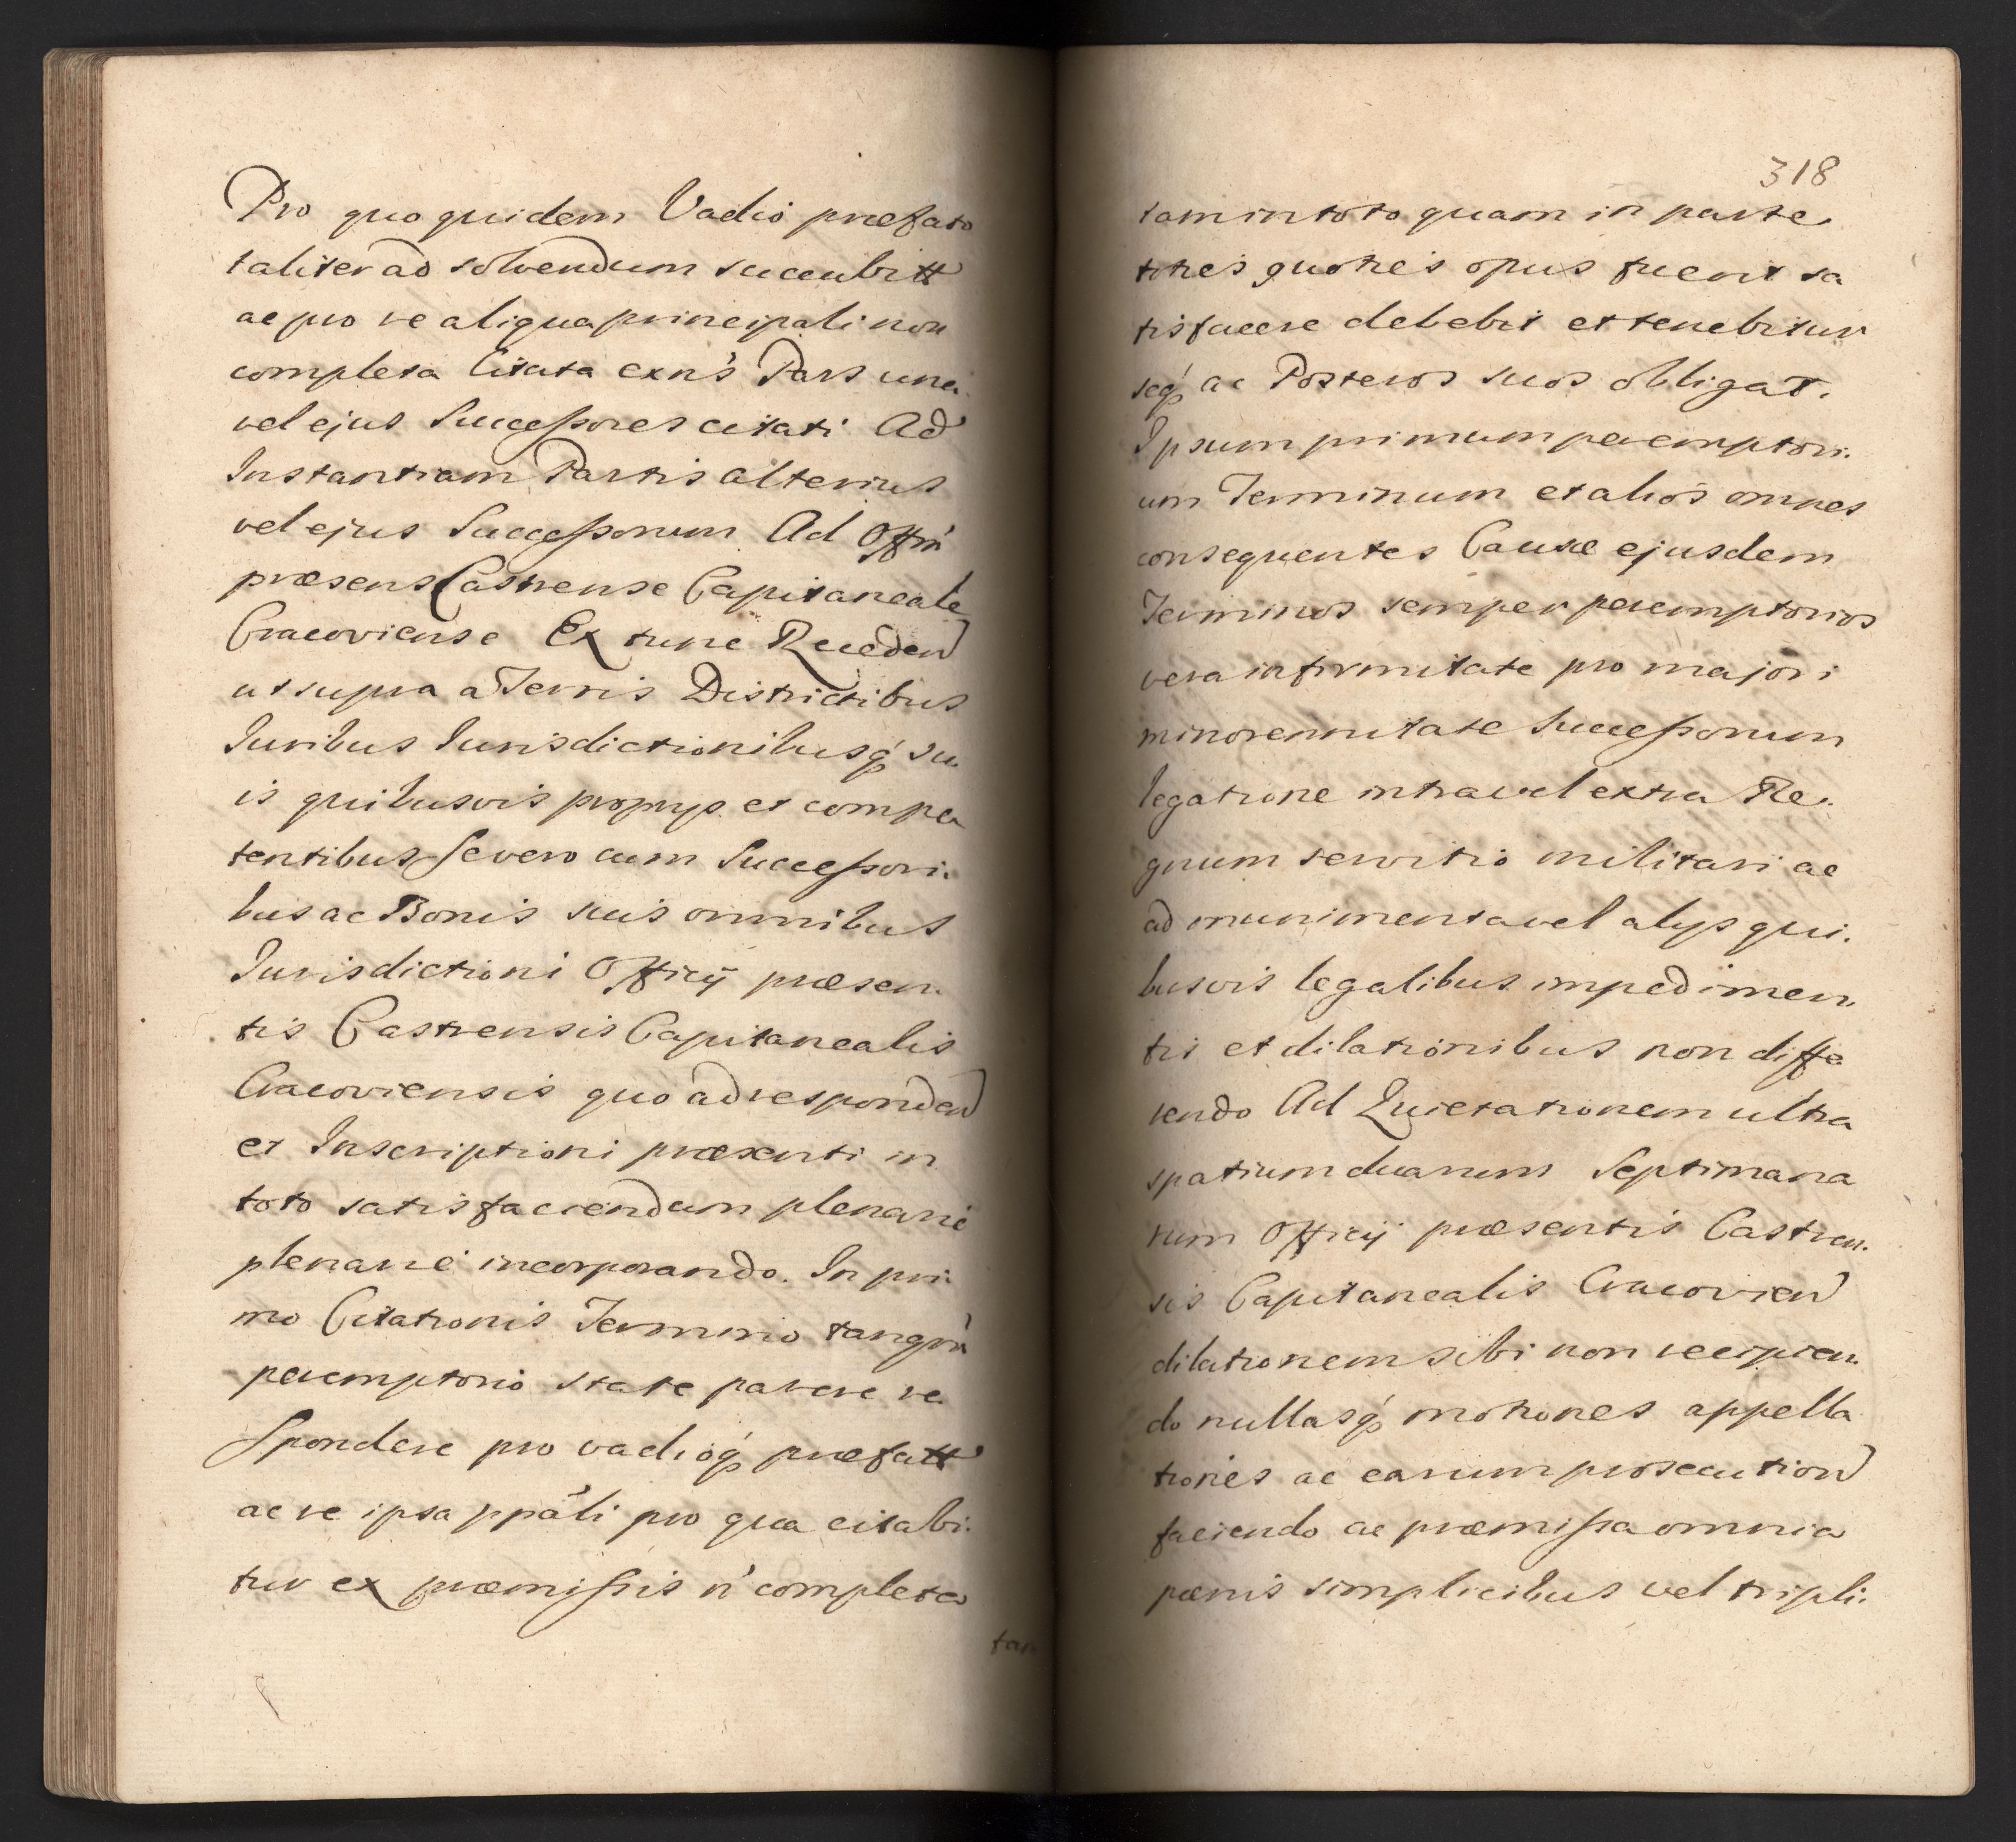 Pro quo quidem Vadio præfato
taliter ad solvendum succubitt
ac pro re aliqua principali non
completa Citata exn's Pars una
vel ejus Successores citati Ad
Instantiam Partis alterius
vel ejus Successorum Ad Offm
præsens Castrense Capitaneale
Cracoviense Ex tunc Receden
ut supra a Terris Districtibus
Iuribus Iurisdictionibusq su
is quibusvis proprys et compe
tentibus se vero cum Successori.
bus ac Bonis suis omnibus
Iurisdictioni Officij præsen
tis Castrensis Capitanealis
Cracoviensis quo ad responden
et Inscriptioni præsenti in
toto satisfaciendum plenarie
plenarie incorporando. In pri
mo Citationis Termino tanqm
peremptorio stare parere re
spondere pro vadioq præfatt
ac re ipsa ppali pro qua citabi.
tur ex præmissis n completa
tam
318
tam in toto quam in parte
toties quoties opus fuerit sa
tisfacere debebit et tenebitur
seq ac Posteros suos obligat.
Ipsum primum peremptori.
um Terminum et alios omnes
consequentes Causæ ejusdem
Terminos semper peremptorios
vera infirmitate pro majori
minorennitate Successorum
legatione intra vel extra Re.
gnum servitio militari ac
ad munimenta vel alys qui.
busvis legalibus impedimen.
tis et dilationibus non diffe
rendo Ad Quietationem ultra
spatium duarum Septimana
rum Officij præsentis Castren.
sis Capitanealis Cracovien
dilationem sibi non recipien.
do nullasq motiones appella
tiones ac earum prosecution
faciendo ac præmissa omnia
pænis simplicibus vel tripli.